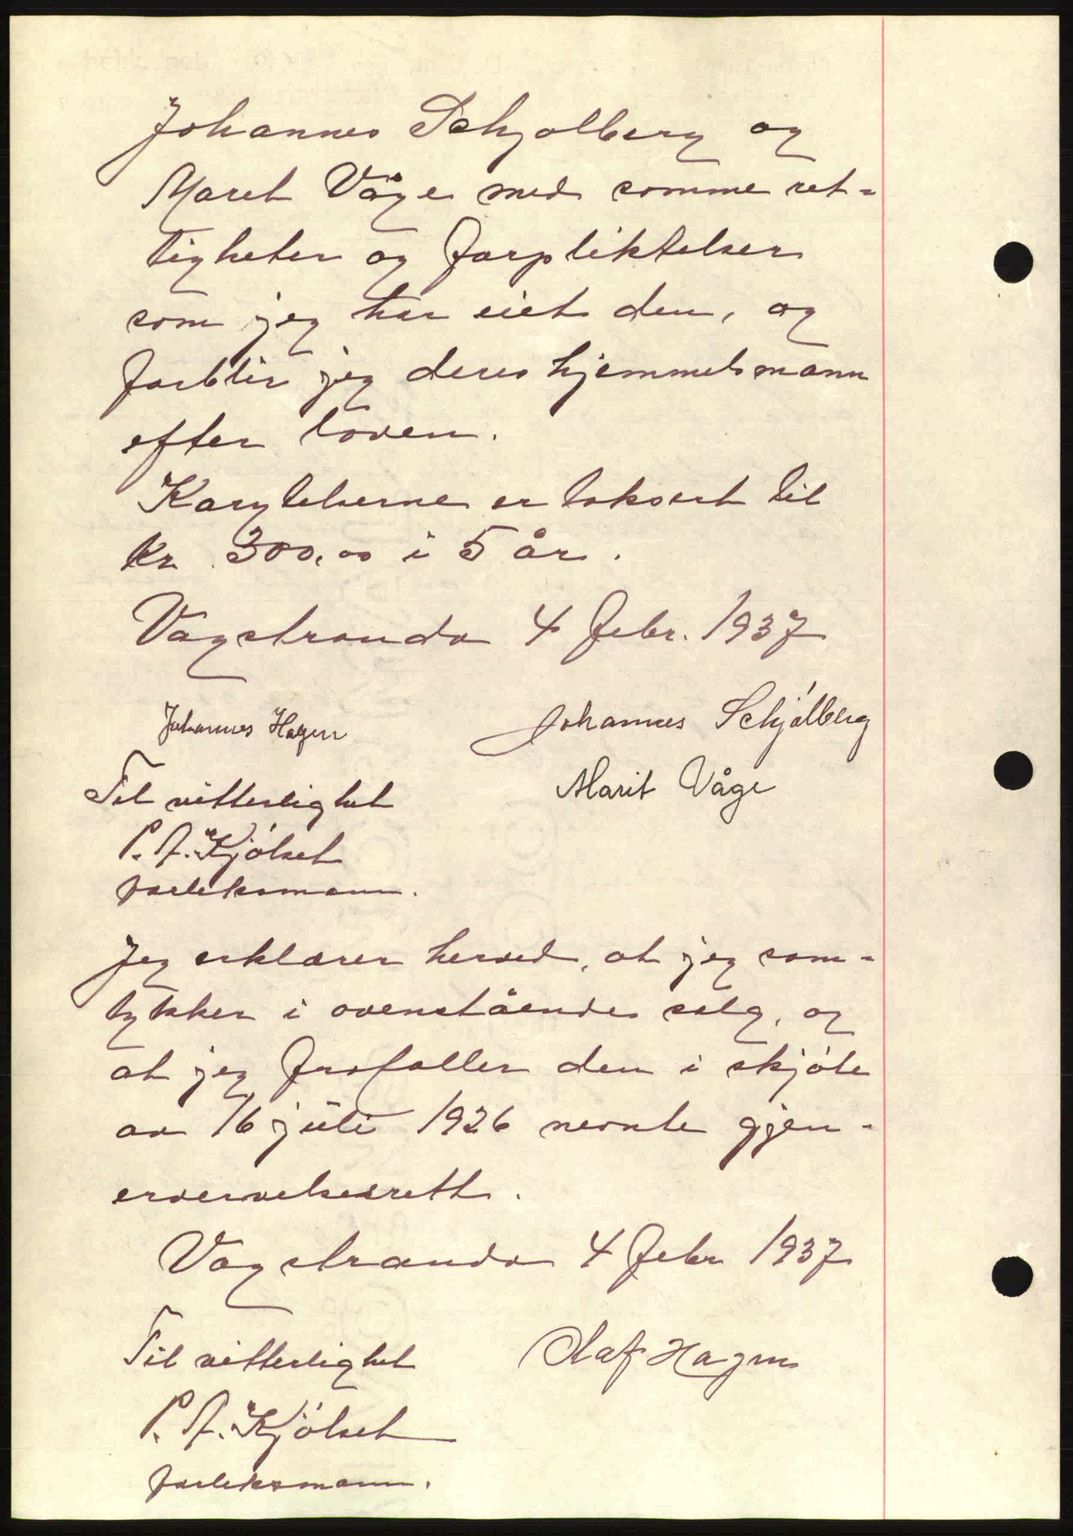 Johannes Schjølberg og
Maret Våge med samme ret-
tigheter og forpliktelser
som jeg har eiet den, og
forblir jeg deres hjemmelsmann
efter loven.
Kårytelserne er taksert til
kr. 300,00 i 5 år.
Vågstranda 4 febr. 1937
Johannes Hagen
Johannes Schjølberg
Marit Våge
Til vitterlighet
P. A. Kjølset
fasteksmann.
Jeg erklærer herved, at jeg sam-
tykker i ovenstående salg, og
at jeg frafaller den i skjøte
av 16 juli 1926 nevnte gjen-
ervervelsesrett.
Vågstranda 4 febr 1937
Til vitterlighet
Olaf Hagen
P. A. Kjølset